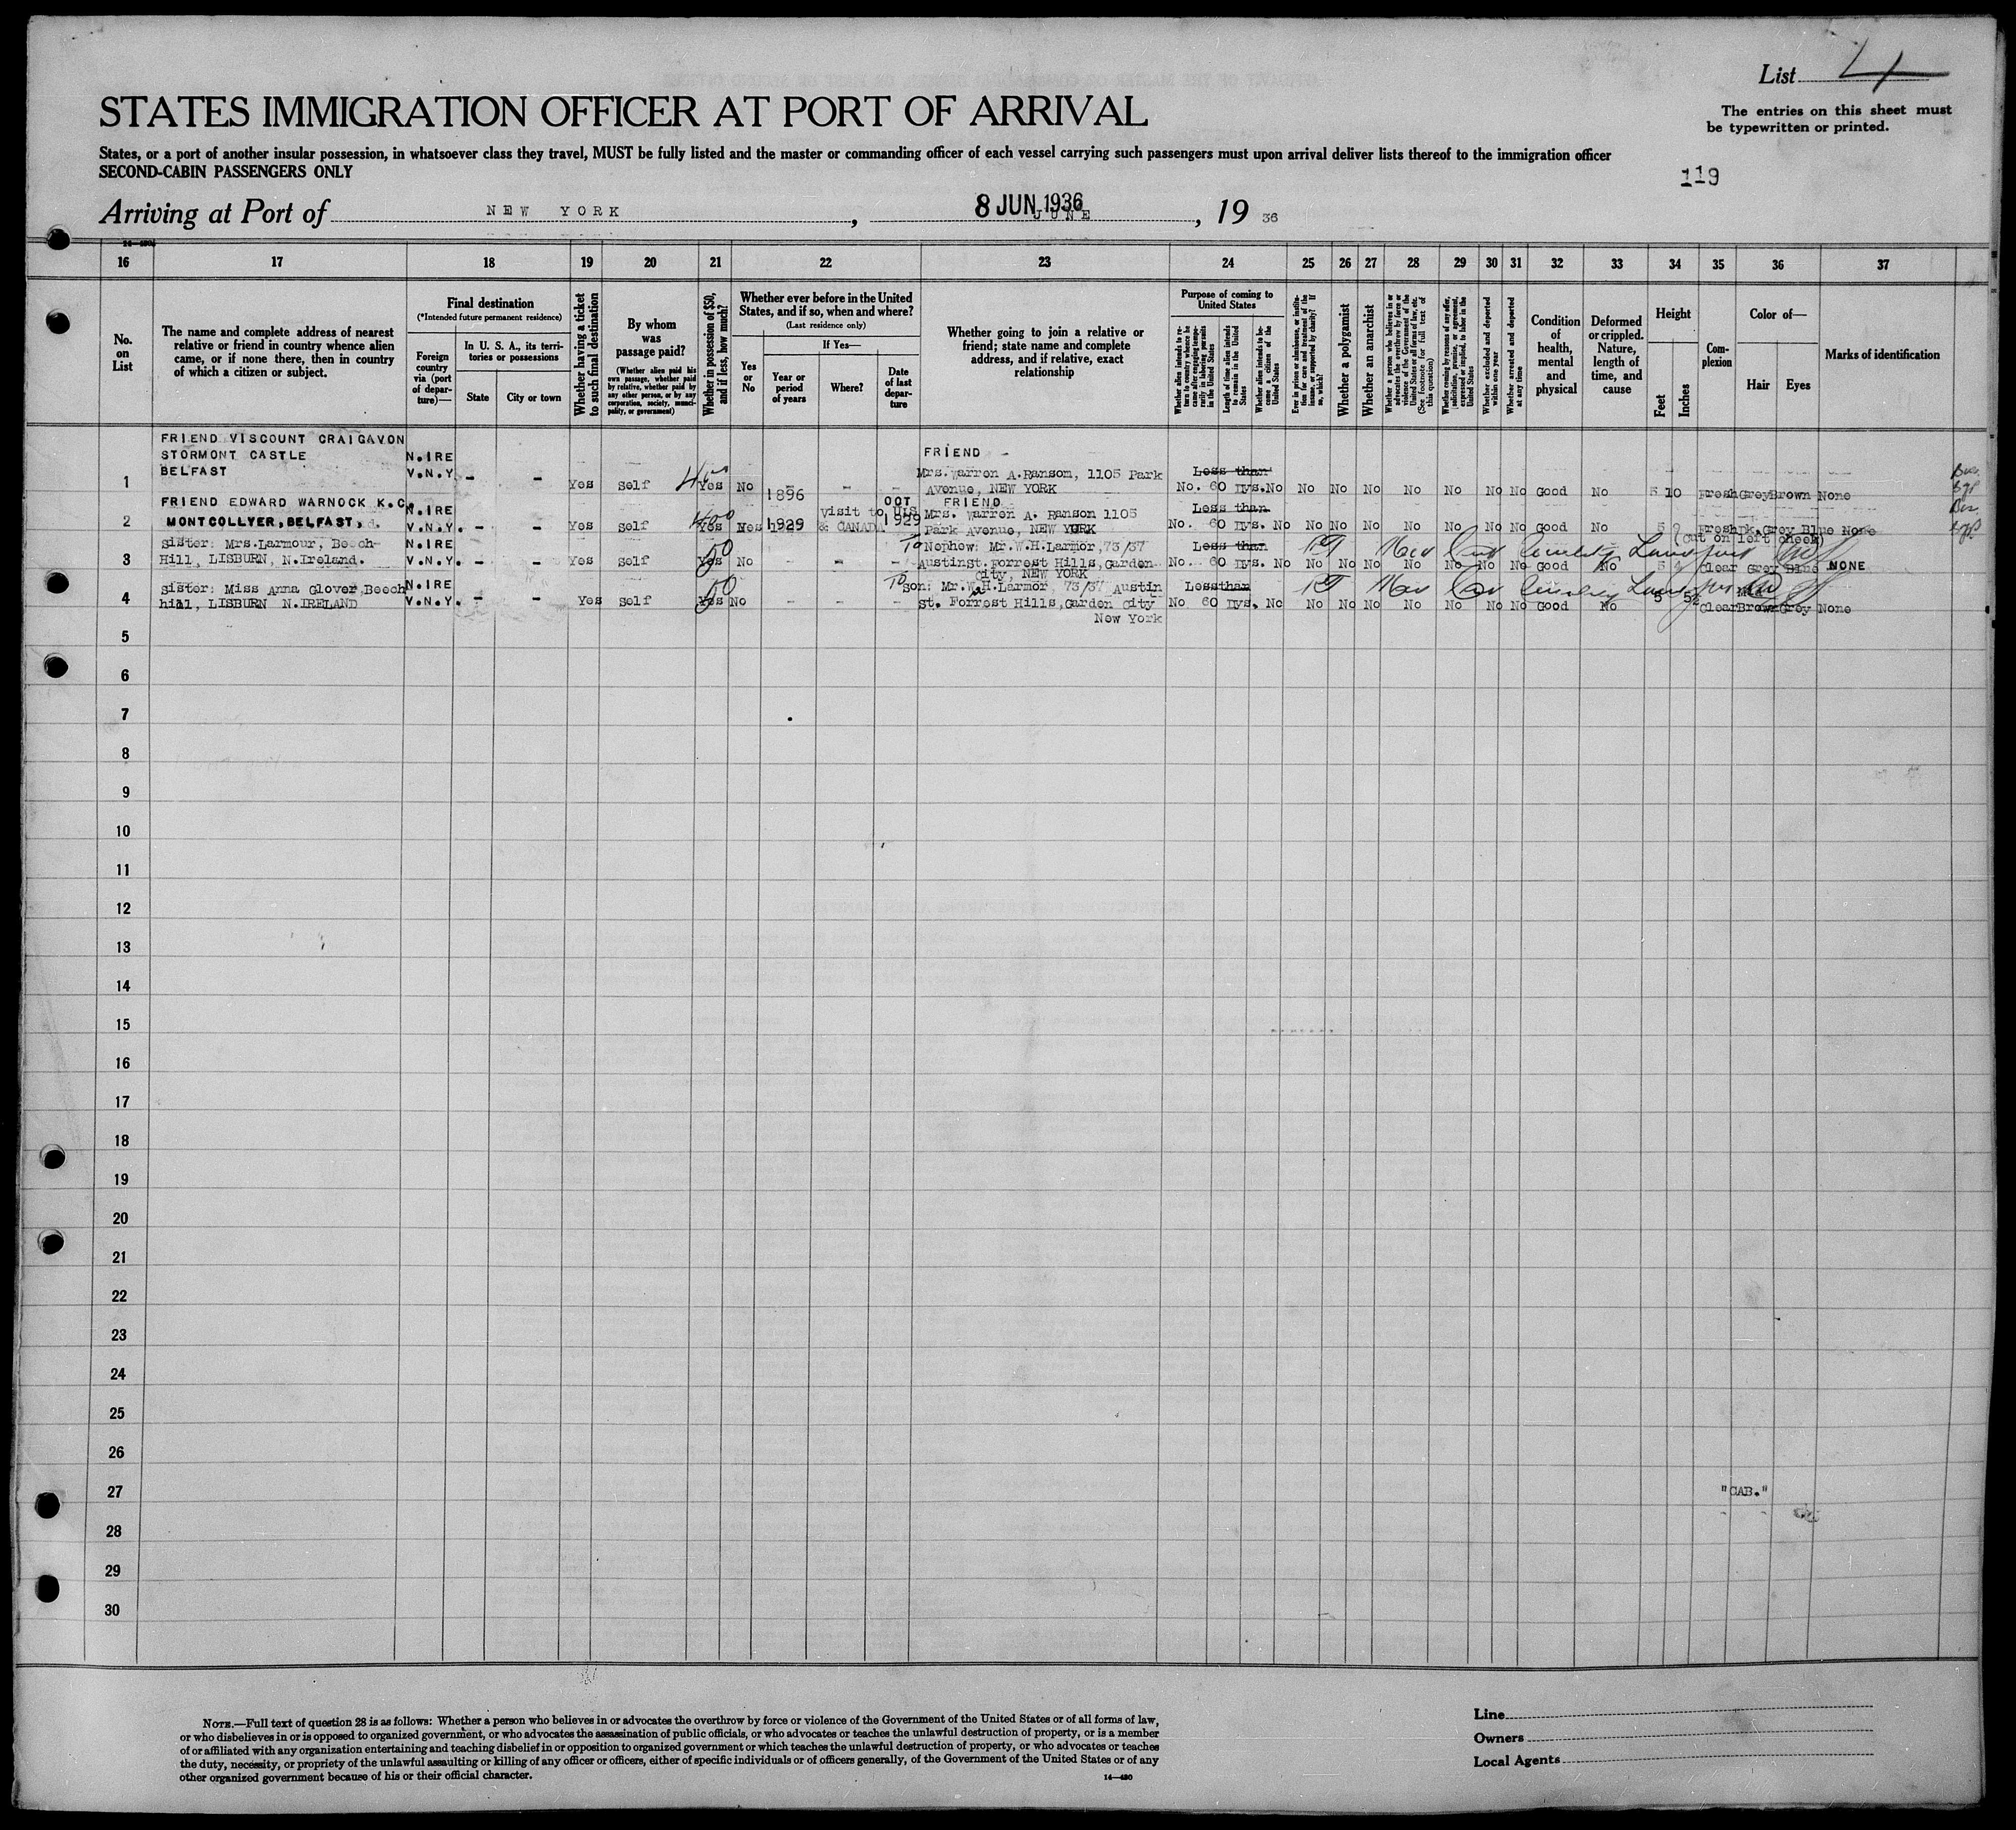 List 4
STATES IMMIGRATION OFFICER AT PORT OF ARRIVAL
The entries on this sheet must
be typewritten or printed.
States, or a port of another insular possession, in whatsoever class they travel, MUST be fully listed and the master or commanding officer of each vessel carrying such passengers must upon arrival deliver lists thereof to the immigration officer
SECOND-CABIN PASSENGERS ONLY
119
Arriving at Port of NEW YORK, 8 JUN 1936 JUNE, 19 36
16 17 18 19 20 21 22 23 24 25 26 27 28 29 30 31 32 33 34 35 36 37
No.
on
List
The name and complete address of nearest
relative or friend in country whence alien
came, or if none there, then in country
of which a citizen or subject.
Final destination
(*Intended future permanent residence)
Foreign
country
via (port
of depar-
ture)—
In U. S. A., its terri-
tories or possessions
State
City or town
Whether having a ticket
to such final destination
By whom
was
passage paid?
(Whether alien paid his
own passage, whether paid
by relative, whether paid by
any other person, or by any
corporation, society, munici-
pality, or government)
Whether in possession of $50,
and if less, how much?
Whether ever before in the United
States, and if so, when and where?
(Last residence only)
Yes
or
No
If Yes—
Year or
period
of years
Where?
Date
of last
depar-
ture
Whether going to join a relative or
friend; state name and complete
address, and if relative, exact
relationship
Purpose of coming to
United States
Whether alien intends to re-
turn to country whence he
came after engaging tempo-
rarily in laboring pursuits
in the United States
Length of time alien intends
to remain in the United
States
Whether alien intends to be-
come a citizen of the
United States
Ever in prison or almshouse, or institu-
tion for care and treatment of the
insane, or supported by charity? If
so, which?
Whether a polygamist
Whether an anarchist
Whether a person who believes in or
advocates the overthrow by force or
violence of the Government of the
United States or all forms of law, etc.
(See footnote for full text of
this question)
Whether coming by reason of any offer,
solicitation, promise, or agreement,
expressed or implied, to labor in the
United States
Whether excluded and deported
within one year
Whether arrested and deported
at any time
Condition
of
health,
mental
and
physical
Deformed
or crippled.
Nature,
length of
time, and
cause
Height
Feet
Inches
Com-
plexion
Color of—
Hair
Eyes
Marks of identification
FRIEND VISCOUNT CRAIGAVON
STORMONT CASTLE N.IRE FRIEND -
BELFAST V.N.Y. Mrs. Warren A. Ransom, 1105 Park Less than
1 - - Yes Self Yes No - - - Avenue, NEW YORK No. 60 Dys. No No No No No No No No Good No 5 10 Fresh Grey Brown None
FRIEND EDWARD WARNOCK K.C. N.IRE 1896 OCT FRIEND Less than
2 MONTCOLLYER, BELFAST, V.N.Y. - - Yes Self 400 Yes Yes 1929 Visit to U.S. & CANADA 1929 Mrs. Warren A. Ranson 1105
Park Avenue, NEW YORK No. 60 Dys. No No No No No No No No Good No 5 9 Fresh Dk.Grey Blue None
(Cut on left cheek)
Sister: Mrs.Larmour, Beech- N.IRE 50 To Nephew: Mr.W.H.Larmor, 73/37 Less than
3 Hill, LISBURN, N.Ireland. V.N.Y. - - Yes Self Yes No - - - Austinst. Forrest Hills, Garden No. 60 Dys. No No No No No No No No Good No 5 4 Clear Grey Blue NONE
City, NEW YORK
Sister: Miss Anna Glover, Beech N.IRE 50 To Son: Mr.W.H.Larmor, 73/37 Austin Lessthan
4 hill, LISBURN N.IRELAND V.N.Y. - - Yes Self Yes No - - - St. Forrest Hills, Garden City No 60 Dys. No No No No No No No No Good No 5 5½ Clear Brown Grey None
New York
5
6
7
8
9
10
11
12
13
14
15
16
17
18
19
20
21
22
23
24
25
26
27 "CAB."
28
29
30
NOTE.—Full text of question 28 is as follows: Whether a person who believes in or advocates the overthrow by force or violence of the Government of the United States or of all forms of law,
or who disbelieves in or is opposed to organized government, or who advocates the assassination of public officials, or who advocates or teaches the unlawful destruction of property, or is a member
of or affiliated with any organization entertaining and teaching disbelief in or opposition to organized government or which teaches the unlawful destruction of property, or who advocates or teaches
the duty, necessity, or propriety of the unlawful assaulting or killing of any officer or officers, either of specific individuals or of officers generally, of the Government of the United States or of any
other organized government because of his or their official character.
14—480
Line
Owners
Local Agents